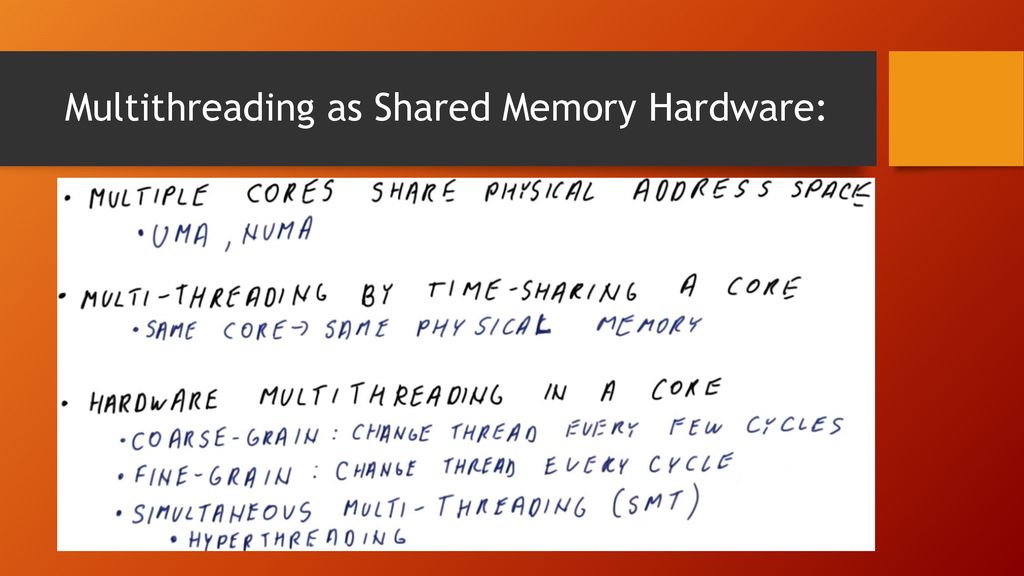 Multithreading as Shared Memory Hardware:
• MULTIPLE CORES SHARE PHYSICAL ADDRESS SPACE
• UMA, NUMA
• MULTI-THREADING BY TIME-SHARING A CORE
• SAME CORE → SAME PHYSICAL MEMORY
• HARDWARE MULTITHREADING IN A CORE
• COARSE-GRAIN : CHANGE THREAD EVERY FEW CYCLES
• FINE-GRAIN : CHANGE THREAD EVERY CYCLE
• SIMULTANEOUS MULTI-THREADING (SMT)
• HYPERTHREADING